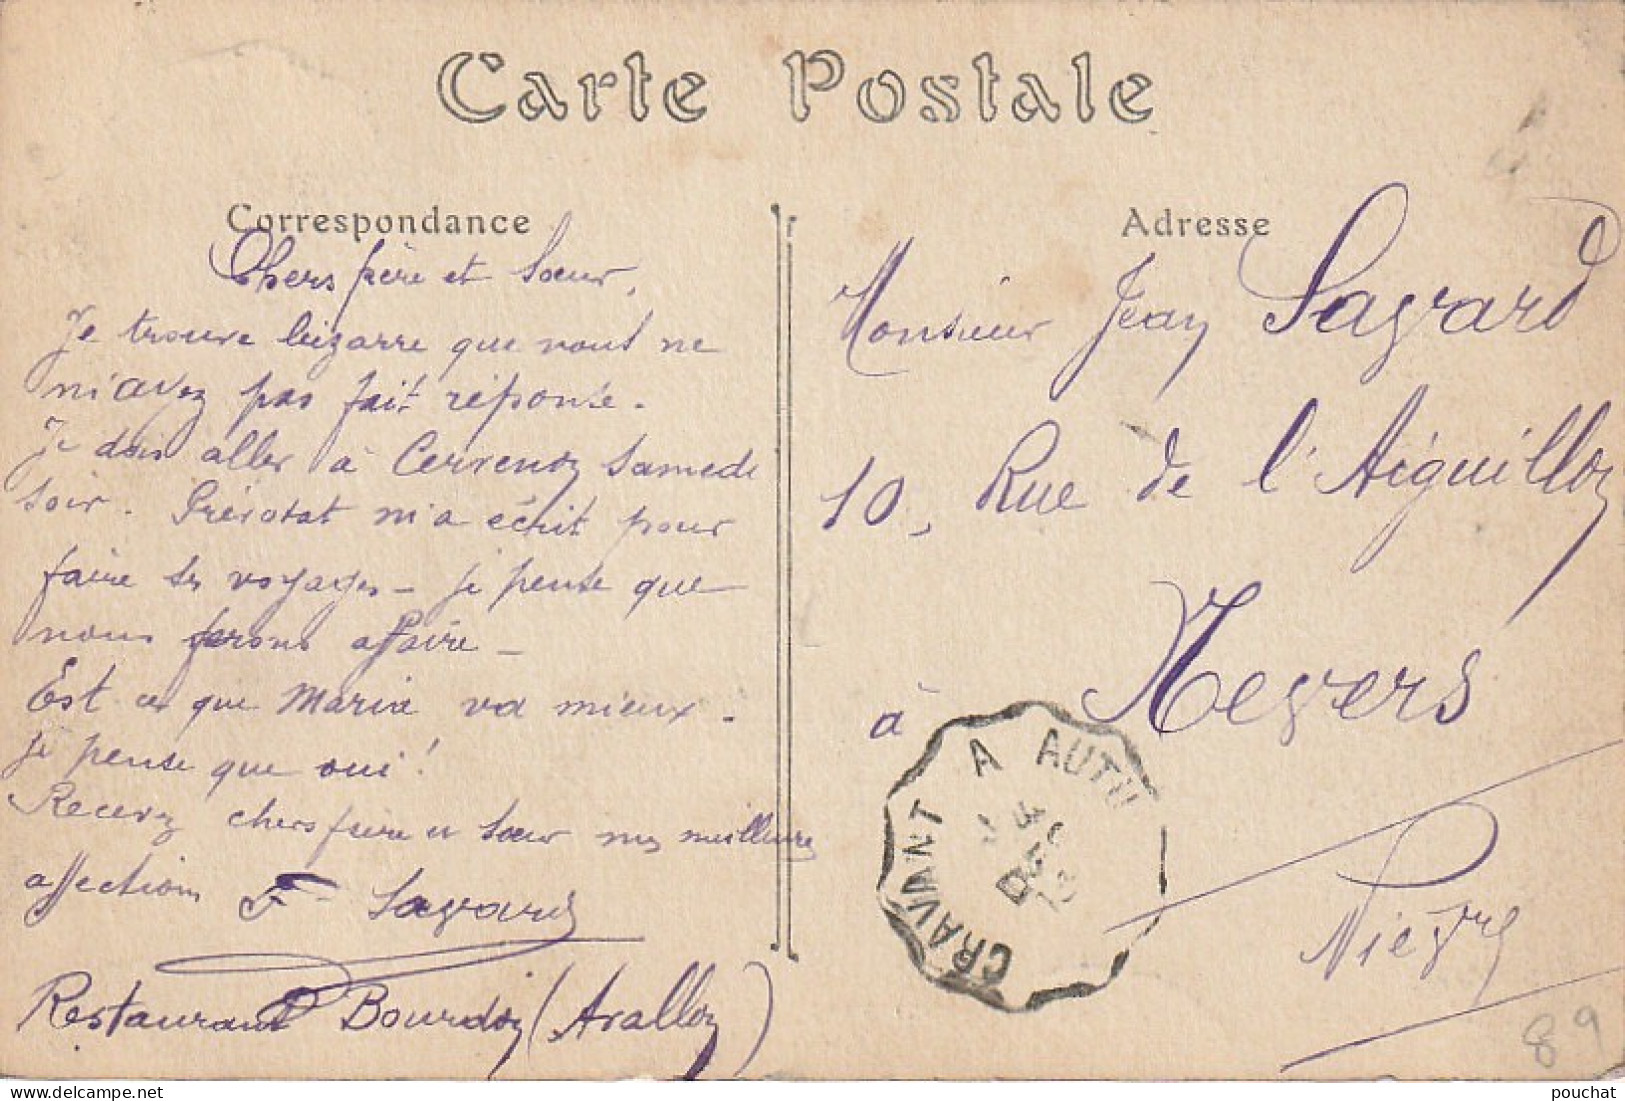 Carte Postale
Correspondance
Chers père et Sœur,
Je trouve bizarre que vous ne
m'avez pas fait réponse.
Je dois aller à Cervenon Samedi
soir. Prévotat m'a écrit pour
faire ses voyages - je pense que
nous ferons affaire -
Est ce que Maria va mieux.
je pense que oui!
Recevez chers père et sœur mes meilleures
affections F. Sagvard
Restaurant Bourdon (Avallon)
Adresse
Monsieur Jean Sagvard
10, Rue de l'Aiguillon
à Nevers
Nièvre
CRAVANT A AUTU
DEC
89
pouchat